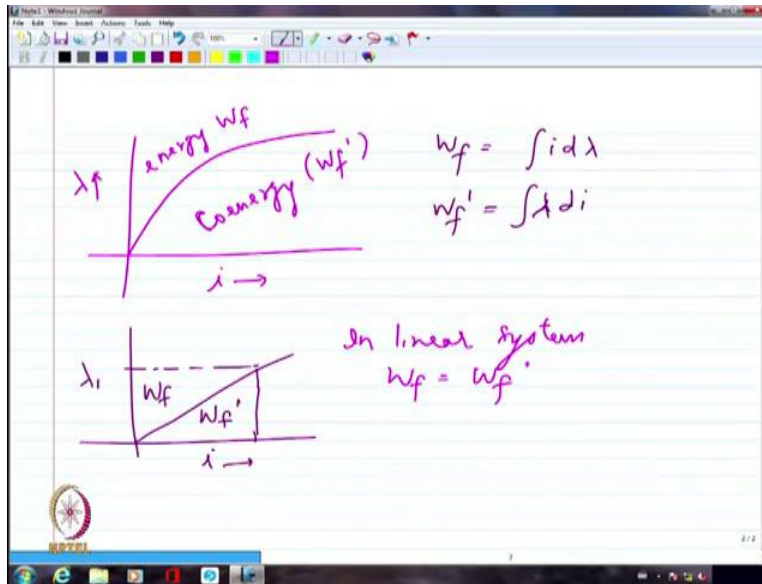 Note1 - Windows Journal
File Edit View Insert Actions Tools Help
100%
B I
energy Wf
λ↑
Coenergy (Wf')
i →
Wf = ∫i dλ
Wf' = ∫λ di
λ1
Wf
Wf'
i →
In linear system
Wf = Wf'
NPTEL
2/2